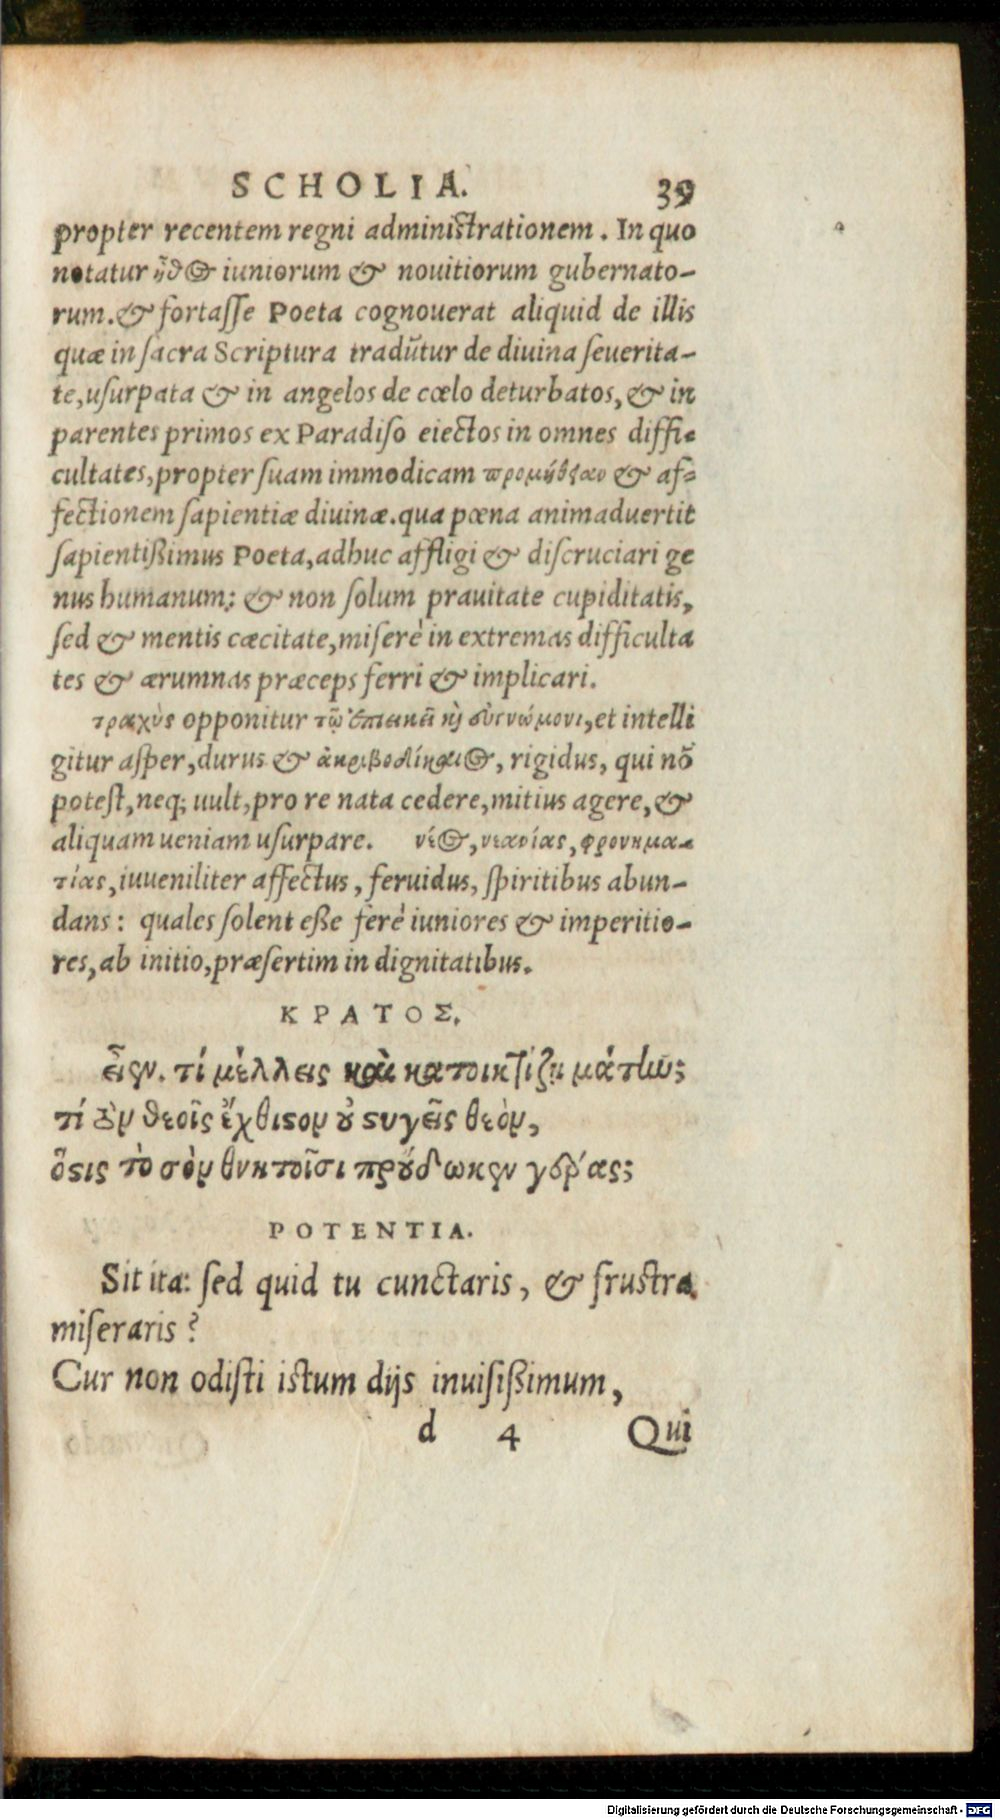 SCHOLIA. 39
propter recentem regni administrationem. In quo
notatur ἦθος iuniorum & nouitiorum gubernato-
rum. & fortasse Poeta cognouerat aliquid de illis
quæ in sacra Scriptura tradūtur de diuina seuerita-
te, usurpata & in angelos de cœlo deturbatos, & in
parentes primos ex Paradiso eiectos in omnes diffi-
cultates, propter suam immodicam προμήθειαν & af-
fectionem sapientiæ diuinæ. qua pœna animaduertit
sapientißimus Poeta, adhuc affligi & discruciari ge
nus humanum; & non solum prauitate cupiditatis,
sed & mentis cæcitate, miserè in extremas difficulta
tes & ærumnas præceps ferri & implicari.
τραχὺς opponitur τῷ ἐπιεικεῖ καὶ συγγνώμονι, et intelli
gitur asper, durus & ἀκριβοδίκαιος, rigidus, qui nō
potest, neq; uult, pro re nata cedere, mitius agere, &
aliquam ueniam usurpare. νέος, νεανίας, φρονημα-
τίας, iuueniliter affectus, feruidus, spiritibus abun-
dans: quales solent eße ferè iuniores & imperitio-
res, ab initio, præsertim in dignitatibus.
ΚΡΑΤΟΣ.
εἶεν. τί μέλλεις καὶ κατοικτίζῃ μάτην;
τί τὸν θεοῖς ἔχθιστον οὐ στυγεῖς θεὸν,
ὅστις τὸ σὸν θνητοῖσι προὔδωκεν γέρας;
POTENTIA.
Sit ita: sed quid tu cunctaris, & frustra
miseraris?
Cur non odisti istum dijs inuisißimum,
d 4 Qui
Digitalisierung gefördert durch die Deutsche Forschungsgemeinschaft - DFG